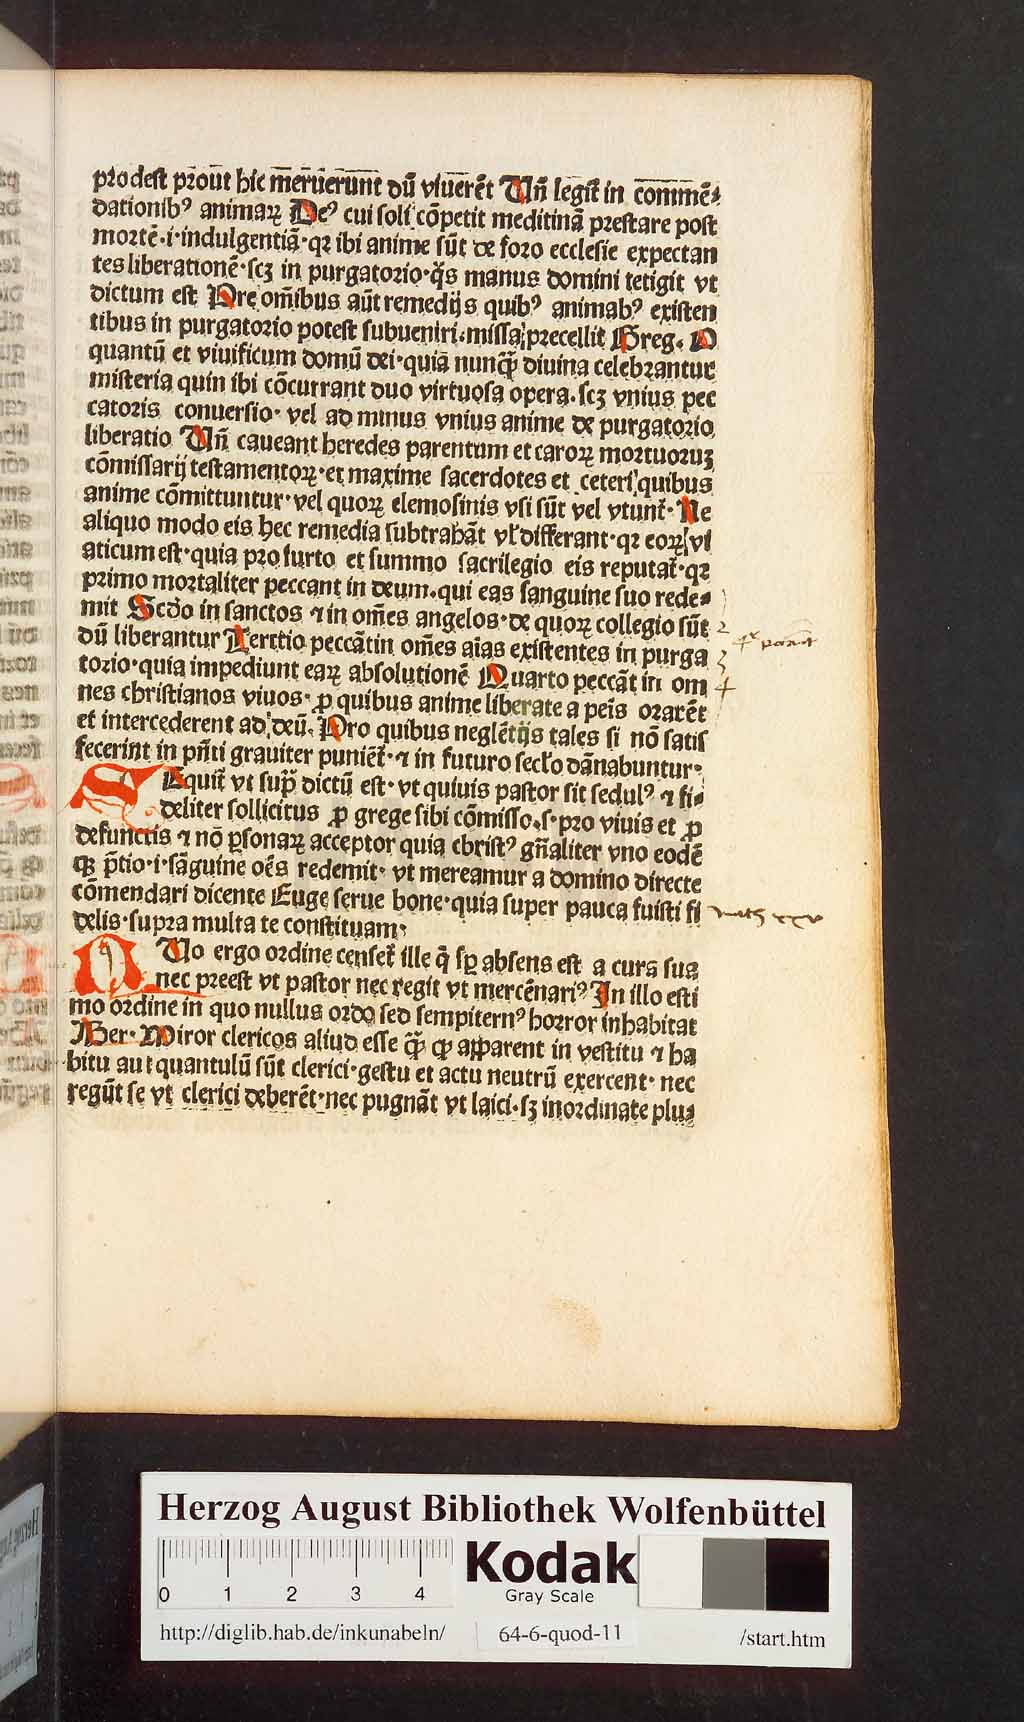 prodest prout̄ hic mēruērunt dū viuerēt Vn̄ legit̄ in commē⸗
dationibꝰ animaꝝ Deꝰ cui soli cōpetit meditinā prestare post
mortē·i·indulgentiā·qꝛ ibi anime sūt de foro ecclesie expectan
tes liberationē·scꝫ in purgatorio·q̄s manus domini tetigit vt
dictum est Pre om̄ibus aūt remedijs quibꝰ animabꝰ existen
tibus in purgatorio potest subueniri·missa precellit Greg. O
quantū et viuificum domū dei·quia nunq̄ꝫ diuina celebrantur
misteria quin ibi cōcurrant duo virtuosa opera·scꝫ vnius pec
catoris conuersio· vel ad minus vnius anime de purgatorio
liberatio Vn̄ caueant heredes parentum et caroꝝ mortuoruꝫ
cōmissarij testamentoꝝ·et maxime sacerdotes et ceteri quibus
anime cōmittuntur·vel quoꝝ elemosinis vsi sūt vel vtunt̄· Ne
aliquo modo eis hec remedia subtrahāt vl̄ differant·qꝛ eoꝝ vi
aticum est·quia pro furto et summo sacrilegio eis reputat̄·qꝛ
primo mortaliter peccant in deum·qui eas sanguine suo rede⸗
mit Scdo in sanctos ⁊ in om̄es angelos·de quoꝝ collegio sūt
dū liberantur Tercio peccāt in om̄es aīas existentes in purga
torio·quia impediunt eaꝝ absolutionē Quarto peccāt in om
nes christianos viuos·ꝓ quibus anime liberate a peīs orarēt
et intercederent ad deū. Pro quibus neglētijs tales si nō satis
fecerint in pn̄ti grauiter puniēt̄·⁊ in futuro seclo dānabuntur·
SEquit̄ vt sup̄ dictū est·vt quiuis pastor sit sedulꝰ ⁊ fi⸗
deliter sollicitus ꝓ grege sibi cōmisso·s·pro viuis et ꝓ
defunctis ⁊ nō ꝑsonaꝝ acceptor quia christꝰ gn̄aliter vno eodē
qꝫ p̄tio·i·sāguine oēs redemit· vt mereamur a domino directe
cōmendari dicente Euge serue bone·quia super pauca fuisti fi
delis·supra multa te constituam·
QUo ergo ordine censet̄ ille q̄ sꝑ absens est a cura sua
nec preest vt pastor nec regit vt mercēnariꝰ In illo esti
mo ordine in quo nullus ordo sed sempiternꝰ horror inhabitat
Ber· Miror clericos aliud esse q̄ꝫ ꝙ apparent in vestitu ⁊ ha
bitu aut quantulū sūt clerici·gestu et actu neutrū exercent· nec
regūt se vt clerici deberēt·nec pugnāt vt laici·sꝫ inordinate plus
2
3
4
math xxv
Herzog August Bibliothek Wolfenbüttel
0 1 2 3 4
Kodak
Gray Scale
http://diglib.hab.de/inkunabeln/
64-6-quod-11
/start.htm